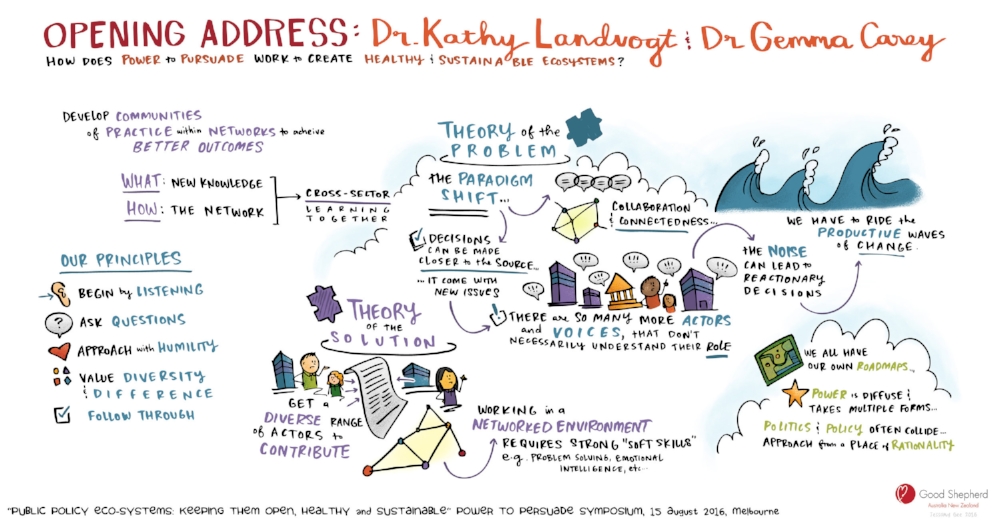 OPENING ADDRESS: Dr. Kathy Landvogt & Dr Gemma Carey
HOW DOES POWER to PURSUADE WORK to CREATE HEALTHY & SUSTAINABLE ECOSYSTEMS?
DEVELOP COMMUNITIES
of PRACTICE within NETWORKS to acheive
BETTER OUTCOMES
WHAT: NEW KNOWLEDGE
HOW: THE NETWORK
CROSS-SECTOR
LEARNING
TOGETHER
OUR PRINCIPLES
BEGIN by LISTENING
? ASK QUESTIONS
APPROACH with HUMILITY
VALUE DIVERSITY
& DIFFERENCE
FOLLOW THROUGH
THEORY of the
PROBLEM
the PARADIGM
SHIFT...
COLLABORATION
& CONNECTEDNESS...
DECISIONS
CAN BE MADE
CLOSER to the SOURCE...
... IT COME WITH
NEW ISSUES
! THERE are SO MANY MORE ACTORS
and VOICES, THAT DON'T
NECESSARILY UNDERSTAND THEIR ROLE
the NOISE
CAN LEAD to
REACTIONARY
DECISIONS
WE HAVE to RIDE the
PRODUCTIVE WAVES
of CHANGE.
THEORY
OF THE
SOLUTION
GET a
DIVERSE RANGE
of ACTORS to
CONTRIBUTE
WORKING in a
NETWORKED ENVIRONMENT
REQUIRES STRONG "SOFT SKILLS"
e.g. PROBLEM SOLVING, EMOTIONAL
INTELLIGENCE, etc...
WE ALL HAVE
OUR OWN ROADMAPS...
POWER is DIFFUSE &
TAKES MULTIPLE FORMS...
POLITICS & POLICY OFTEN COLLIDE...
APPROACH from a PLACE of RATIONALITY
Good Shepherd
Australia New Zealand
"PUBLIC POLICY ECO-SYSTEMS: KEEPING THEM OPEN, HEALTHY and SUSTAINABLE" POWER TO PERSUADE SYMPOSIUM, 15 august 2016, melbourne